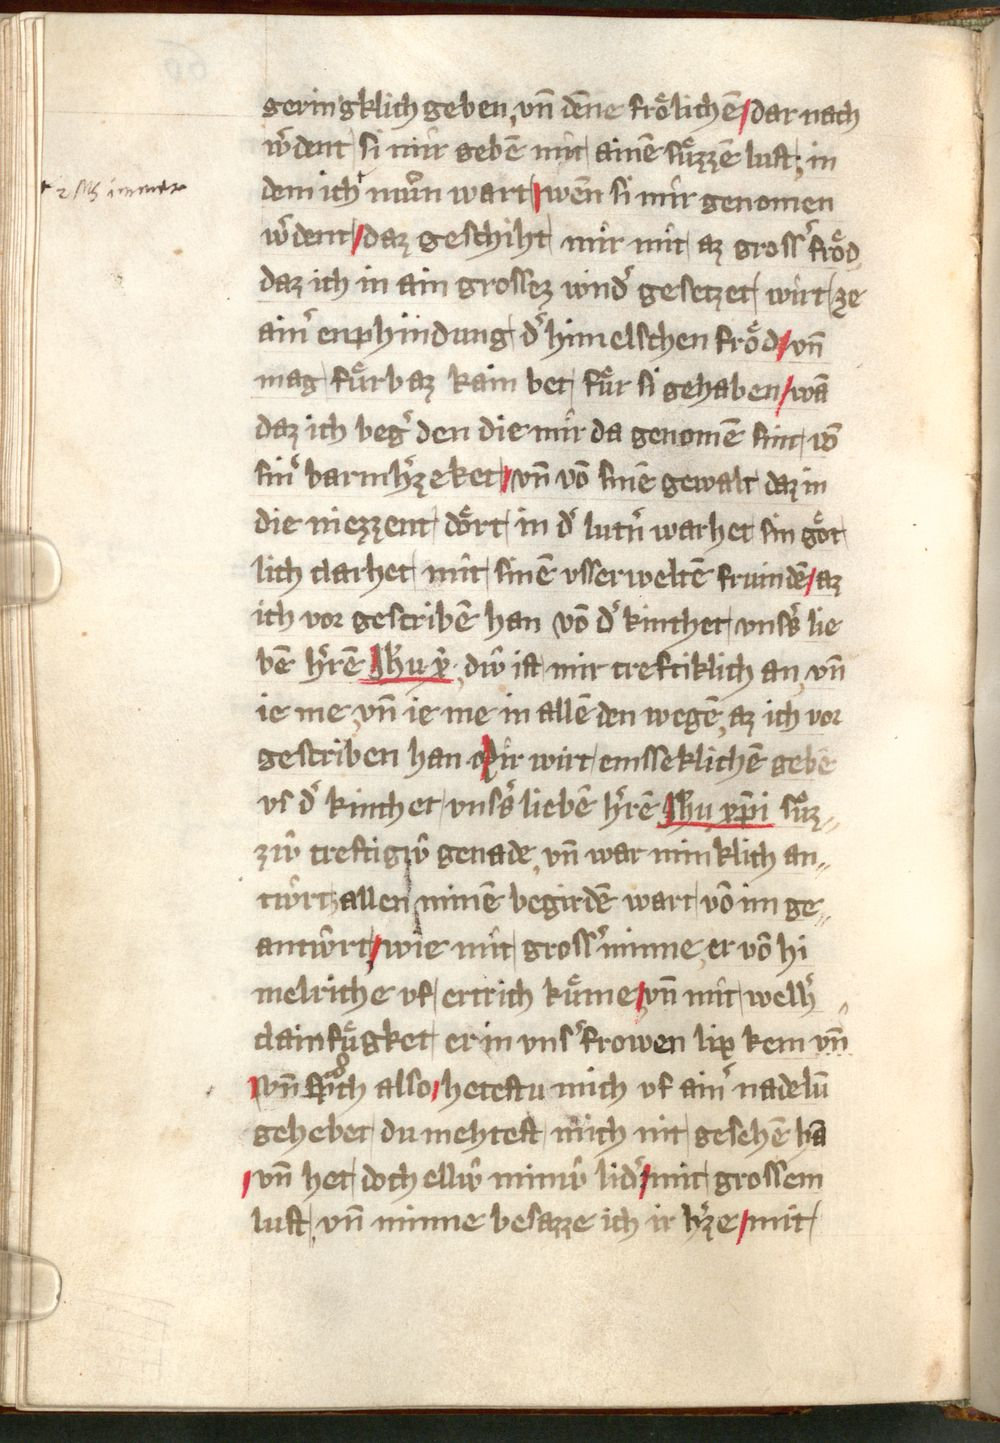 geringklich geben, vn̄ dēne froͤlichē / dar nach
w͛dent si mir gebē mit ainē suͤzzē lust, in
dem ich muͦn wart / wen si mir genomen
w͛dent / daz geschiht mir mit az gross͛ froͤd
daz ich in ain grossez wnd͛ gesetzet wirt ze
ain͛ enphindung d͛ himelschen froͤd / vn̄
mag fuͤrbaz kain bet fuͤr si gehaben / wā
daz ich beg͛ den die mir da genomē sint, vō
sin͛ barmh͛zeket / vn̄ vō sinē gewalt daz in
die niezzent doͤrt in d͛ lutr͛ warhet sin goͤt
lich clarhet mit sinē vsserweltē fruindē / az
ich vor gescribē han vō d͛ kinthet vns͛s lie
bē h͛rē Jhu xͥ, diŵ ist mir creftiklich an, vn̄
ie me, vn̄ ie me in allē den wegē, az ich vor
gescriben han Mir wirt emsseklichē gebē
vs d͛ kinthet vns͛s liebē h͛rē Jhu xp̄i suͤz
ziŵ creftigiŵ genade, vn̄ war minklich an
twrt, allen minē begirdē wart vō im ge
antwrt / wie mit gross͛ minne, er vō hi
melriche vf ertrich kuͤme / vn̄ mit welh͛
clainfuͤgket er in vns͛ frowen lip kem vn̄
vn̄ spͣch also / hetestu mich vf ain͛ nadelū
gehebet du mehtest mich nit gesehē hā
/ vn̄ het doch elliŵ miniŵ lid͛ / mit grossem
lust, vn̄ minne besazze ich ir h͛ze / mit